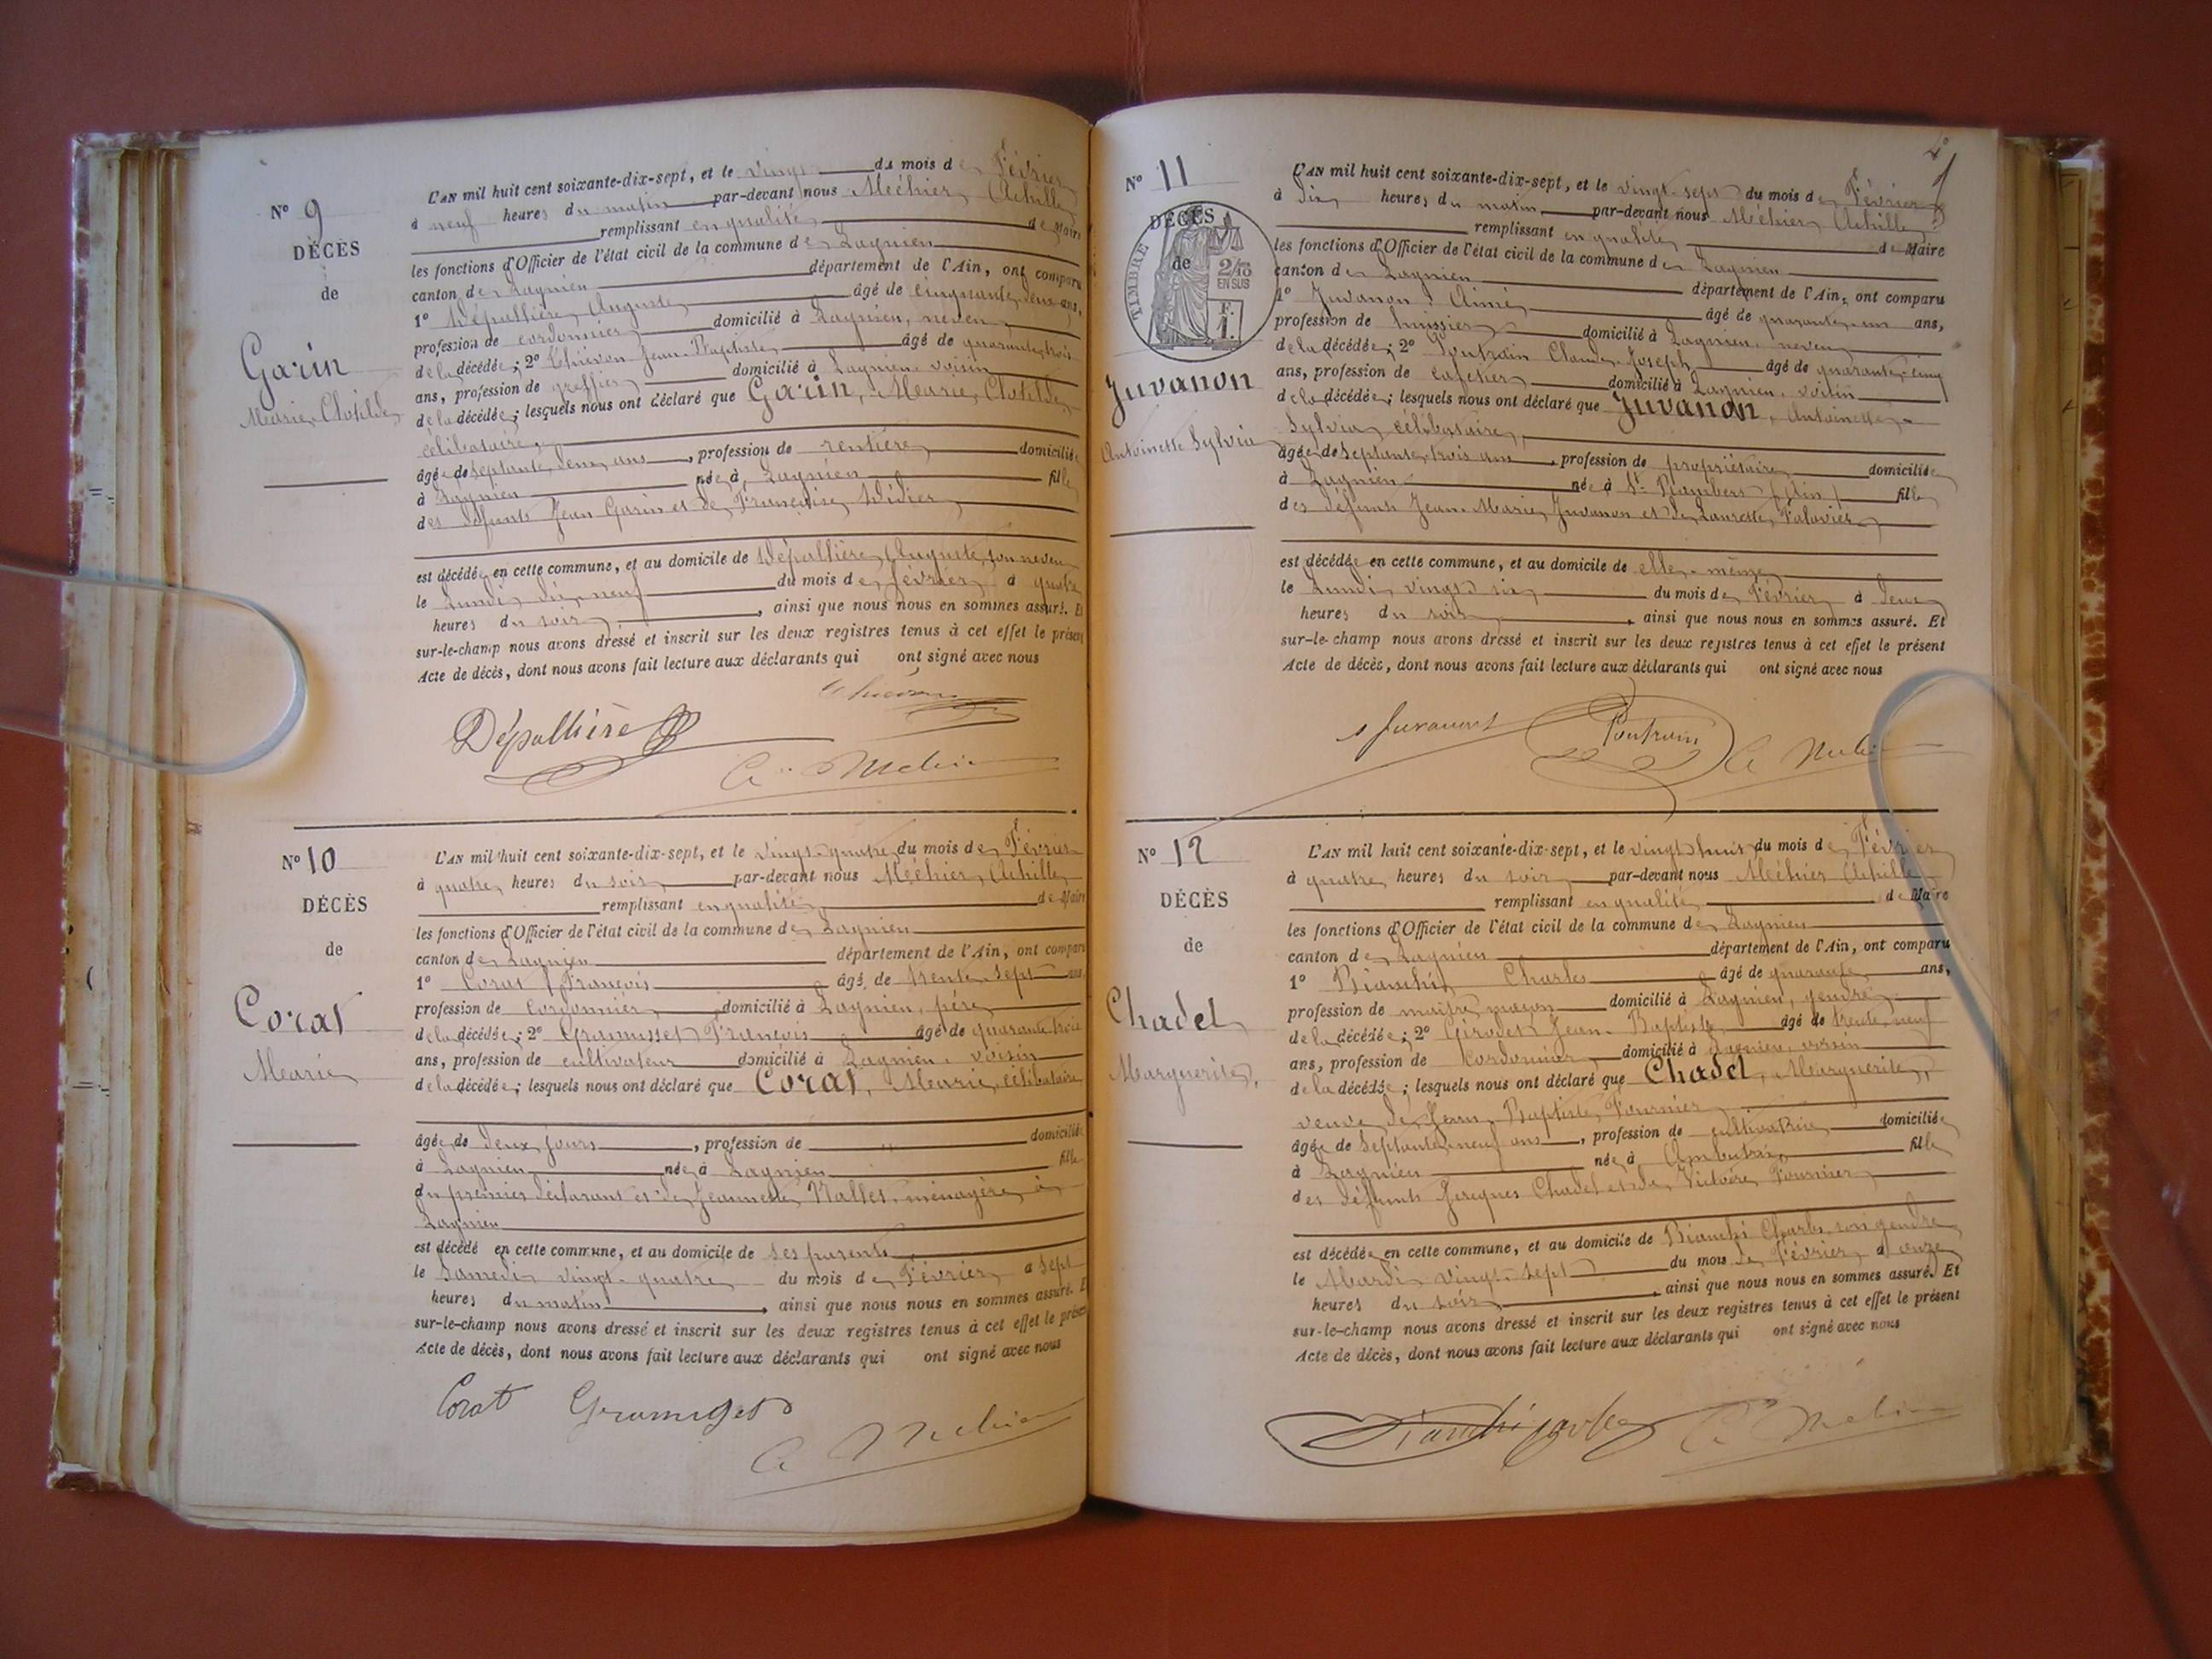 Nº 9
DÉCÈS
de
Garin
Marie Clotilde
L'AN mil huit cent soixante-dix-sept, et le vingt du mois de Février
à neuf heures du matin par-devant nous Méchier, Achille
remplissant en qualité de Maire
les fonctions d'Officier de l'état civil de la commune de Lagnieu
canton de Lagnieu département de l'Ain, ont comparu
1º Dépallière, Auguste âgé de cinquante deux ans,
profession de cordonnier domicilié à Lagnieu, neveu
de la décédée; 2º Thiévon Jean-Baptiste âgé de quarante trois
ans, profession de greffier domicilié à Lagnieu, voisin
de la décédée; lesquels nous ont déclaré que Garin, Marie, Clotilde,
célibataire,
âgée de septante deux ans, profession de rentière domiciliée
à Lagnieu née à Lagnieu fille
des défunts Jean Garin et de Françoise Didier
est décédée en cette commune, et au domicile de Dépallière, Auguste, son neveu
le Lundi dix-neuf du mois de février à quatre
heures du soir, ainsi que nous nous en sommes assuré. Et
sur-le-champ nous avons dressé et inscrit sur les deux registres tenus à cet effet le présent
Acte de décès, dont nous avons fait lecture aux déclarants qui ont signé avec nous
Dépallière
Nº 10
DÉCÈS
de
Corat
Marie
L'AN mil huit cent soixante-dix-sept, et le vingt-quatre du mois de Février
à quatre heures du soir par-devant nous Méchier, Achille
remplissant en qualité de Maire
les fonctions d'Officier de l'état civil de la commune de Lagnieu
canton de Lagnieu département de l'Ain, ont comparu
1º Corat François âgé de trente-sept ans
profession de cordonnier domicilié à Lagnieu, père
de la décédée; 2º Gramusset François âgé de quarante trois
ans, profession de cultivateur domicilié à Lagnieu, voisin
de la décédée; lesquels nous ont déclaré que Corat, Marie, célibataire
âgée de deux jours, profession de " domiciliée
à Lagnieu née à Lagnieu fille
du premier déclarant et de Jeannette Nallet, ménagère à
Lagnieu
est décédé en cette commune, et au domicile de ses parents
le Samedi vingt-quatre du mois de Février à sept
heures du matin, ainsi que nous nous en sommes assuré. E
sur-le-champ nous avons dressé et inscrit sur les deux registres tenus à cet effet le présent
Acte de décès, dont nous avons fait lecture aux déclarants qui ont signé avec nous
Corat
Nº 11
DÉCÈS
de
TIMBRE
2/10
EN SUS
F.
1.
Juvanon
Antoinette Sylvia
L'AN mil huit cent soixante-dix-sept, et le vingt-sept du mois de Février
à dix heures du matin par-devant nous Méchier, Achille
remplissant en qualité de Maire
les fonctions d'Officier de l'état civil de la commune de Lagnieu
canton de Lagnieu département de l'Ain, ont comparu
1º Juvanon Aimé âgé de quarante-un ans,
profession de huissier domicilié à Lagnieu, neveu
de la décédée; 2º Poutrain Claude-Joseph âgé de quarante-cinq
ans, profession de cafetier domicilié à Lagnieu, voisin
de la décédée; lesquels nous ont déclaré que Juvanon, Antoinette
Sylvia, célibataire,
âgée de septante trois ans, profession de propriétaire domiciliée
à Lagnieu née à St Rambert (Ain) fille
des défunts Jean-Marie Juvanon et de Laurette
est décédée en cette commune, et au domicile de elle-même
le Lundi vingt six du mois de Février à deux
heures du soir, ainsi que nous nous en sommes assuré. Et
sur-le-champ nous avons dressé et inscrit sur les deux registres tenus à cet effet le présent
Acte de décès, dont nous avons fait lecture aux déclarants qui ont signé avec nous
Poutrain
Nº 12
DÉCÈS
de
Chadel
Marguerite,
L'AN mil huit cent soixante-dix-sept, et le vingt huit du mois de Février
à quatre heures du soir par-devant nous Méchier Achille
remplissant en qualité de Maire
les fonctions d'Officier de l'état civil de la commune de Lagnieu
canton de Lagnieu département de l'Ain, ont comparu
1º Bianchi Charles âgé de quarante ans,
profession de maître maçon domicilié à Lagnieu, gendre
de la décédée; 2º Girodet Jean-Baptiste âgé de trente-neuf
ans, profession de cordonnier domicilié à Lagnieu, voisin
de la décédée; lesquels nous ont déclaré que Chadel, Marguerite,
veuve de Jean-Baptiste Fournier
âgée de septante neuf ans, profession de cultivatrice domiciliée
à Lagnieu née à Ambutrix fille
des défunts Jacques Chadel et de Victoire Fournier
est décédée en cette commune, et au domicile de Bianchi Charles, son gendre
le Mardi vingt-sept du mois de Février à onze
heures du soir, ainsi que nous nous en sommes assuré. Et
sur-le-champ nous avons dressé et inscrit sur les deux registres tenus à cet effet le présent
Acte de décès, dont nous avons fait lecture aux déclarants qui ont signé avec nous